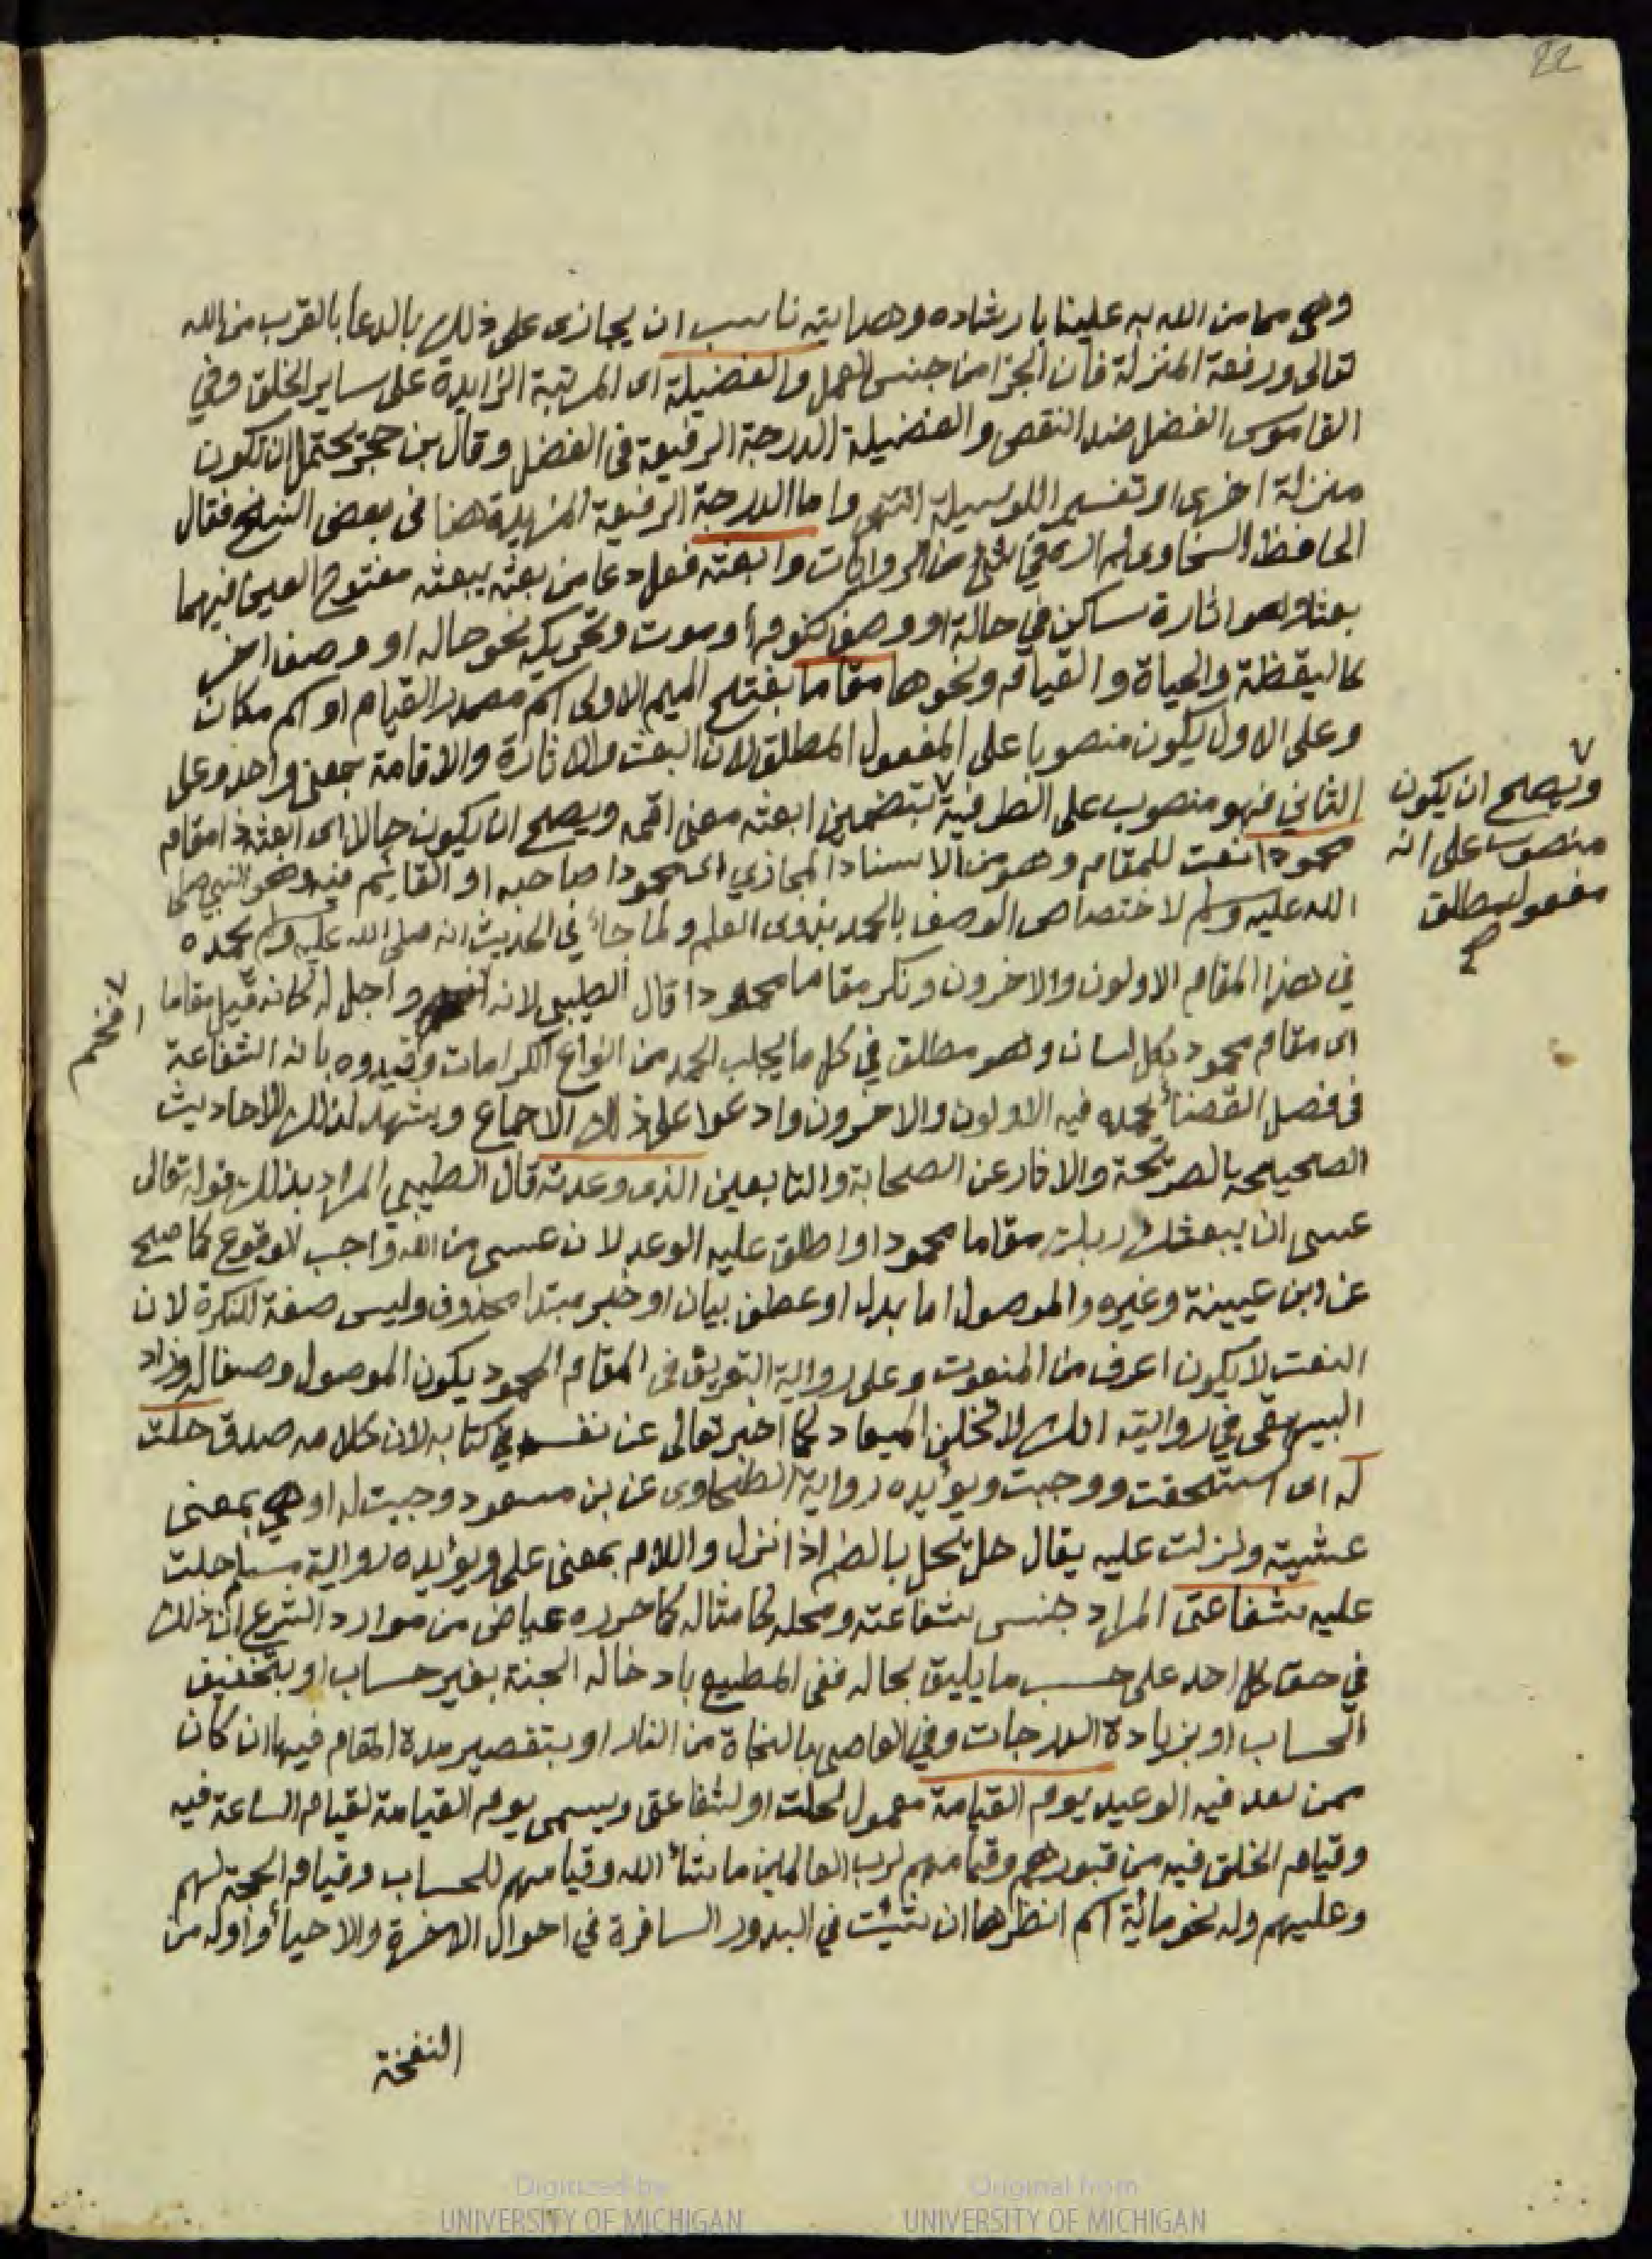 22
وهى مما من الله به علينا بارشاده وهدايته ناسب ان يجازى على ذلك بالدعا بالقرب من الله
تعالى ورفعة المنزلة فان الجزا من جنس العمل والفضيلة اى المرتبة الزايدة على ساير الخلق وفي
القاموس الفضل ضد النقص والفضيلة الدرجة الرفيعة فى الفضل وقال بن حجر يحتمل ان تكون
منزلة اخرى او تفسير اللوسيلة انتهى واما الدرجة الرفيعة المزيدة هنا فى بعض النسخ فقال
الحافظ السخاوى لم اره في شئ من الروايات وابعثه فعل دعا من بعثه يبعثه مفتوح العين فيهما
بعثا وهو اثارة ساكن في حالة او وصف كنوم أو موت وتحريكه نحو حاله او وصف اخر
كاليقظة والحياة والقيام ونحوها مقاما بفتح الميم الاولى اسم مصدر القيام او اسم مكان
وعلى الاول يكون منصوبا على المفعول المطلق لان البعث والاثارة والاقامة بمعنى واحد وعلى
الثاني فهو منصوب على الظرفية بتضمين ابعثه معنى اقمه ويصلح ان يكون حالا اى ابعثه ذا مقام
ويصلح ان يكون
منصوب على انه
مفعول مطلق
صح
محمودا نعت للمقام وهو من الاسناد المجازي اى محمودا صاحبه او القايم فيه وهو النبي صلى
الله عليه وسلم لاختصاص الوصف بالحمد بذوى العلم ولما جاء في الحديث انه صلى الله عليه وسلم يحمده
في هذا المقام الاولون والاخرون ونكر مقاما محمودا قال الطيبي لانه افخم واجل له كانه قيل مقاما
افخم
اى مقام محمود بكل لسان وهو مطلق في كل ما يجلب الحمد من انواع الكرامات وقيدوه بانه الشفاعة
فى فصل القضاء يحمده فيه الاولون والاخرون وادعوا على ذلك الاجماع ويشهد لذلك الاحاديث
الصحيحه بالصريحة والاثار عن الصحابة والتابعين الذى وعدته قال الطيبي المراد بذلك قوله تعالى
عسى ان يبعثك ربك مقاما محمودا واطلق عليه الوعد لان عسى من الله واجب الوقوع كما صح
عن ابن عيينة وغيره والموصول اما بدل او عطف بيان او خبر مبتدا محذوف وليس صفة النكرة لان
النعت لا يكون اعرف من المنعوت وعلى رواية التعريف فى المقام المحمود يكون الموصول وصفا له وزاد
البيهقى في روايته انك لا تخلف الميعاد كما اخبر تعالى عن نفسه في كتابه لان كلامه صدق حلت
له اى استحقت ووجبت ويؤيده رواية الطحاوى عن بن مسعود وجبت له او هي بمعنى
عشيته ونزلت عليه يقال حل يحل بالضم اذا نزل واللام بمعنى على ويؤيده رواية مسلم حلت
عليه شفاعتى المراد جنس شفاعته ومحله كامثاله كما حرره عياض من موارد الشرع ان ذلك
في حق كل احد على حسب ما يليق بحاله ففى المطيع بادخاله الجنة بغير حساب او بتخفيف
الحساب او بزيادة الدرجات وفي العاصى بالنجاة من النار او بتقصير مدة المقام فيها ان كان
ممن نفد فيه الوعيد يوم القيامة معمول لحلت او لشفاعتى ويسمى يوم القيامة لقيام الساعة فيه
وقيام الخلق فيه من قبورهم وقيامهم لرب العالمين ما شاء الله وقيامهم للحساب وقيام الحجة لهم
وعليهم وله نحو مائة اسم انظرها ان شئت في البدور السافرة في احوال الاخرة والاحياء واوله من
النفخة
Digitized by
UNIVERSITY OF MICHIGAN
Original from
UNIVERSITY OF MICHIGAN